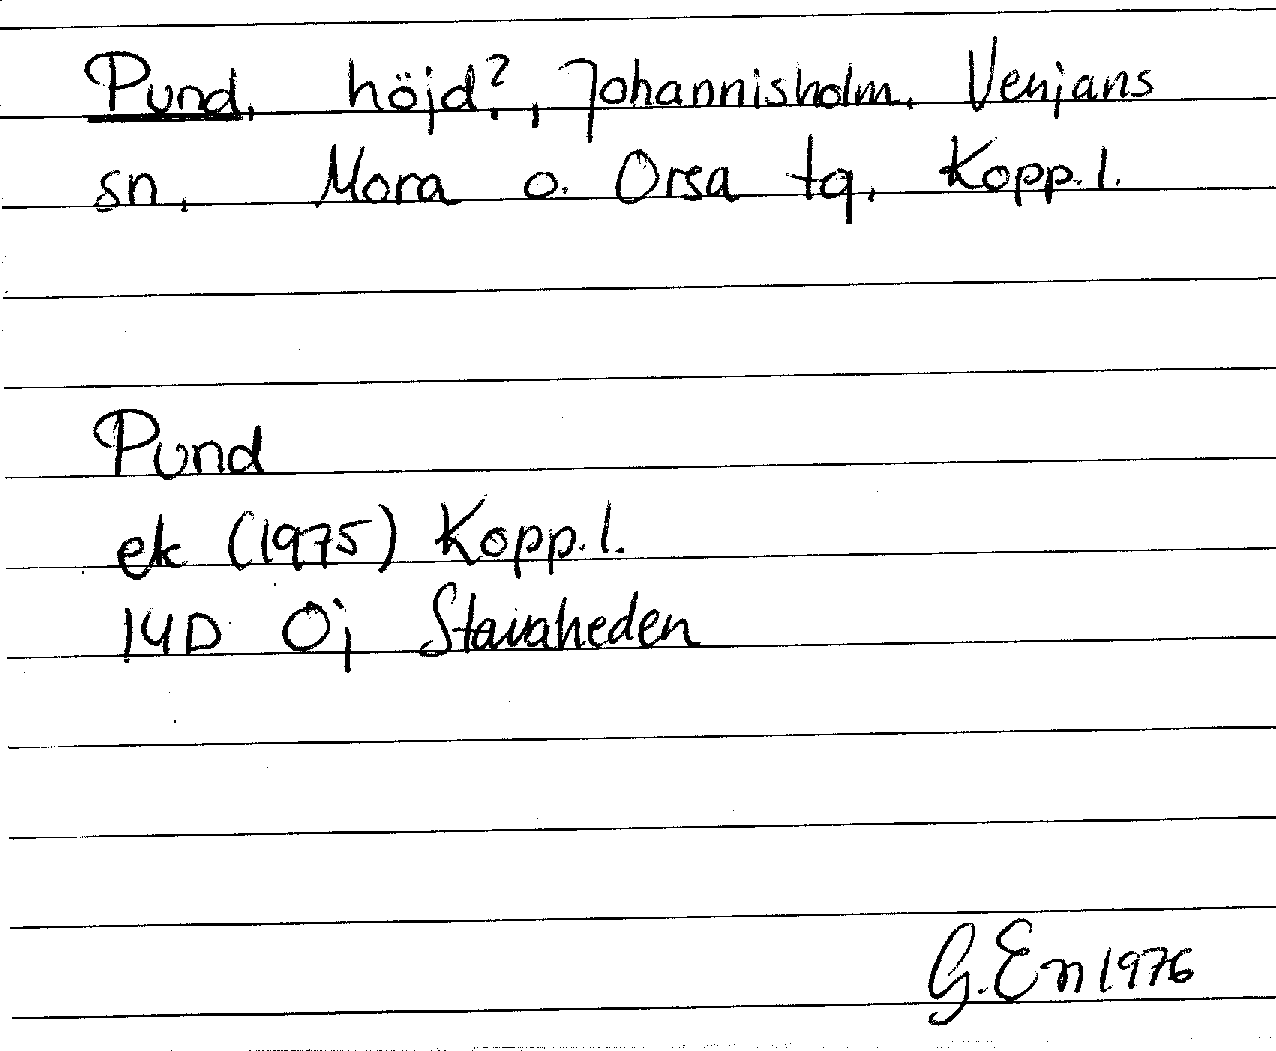 Pund, höjd?, Johannisholm, Venjans
sn, Mora o. Orsa tg, Kopp. l.
Pund
ek (1975) Kopp. l.
14D 0j Stavaheden
G. En 1976